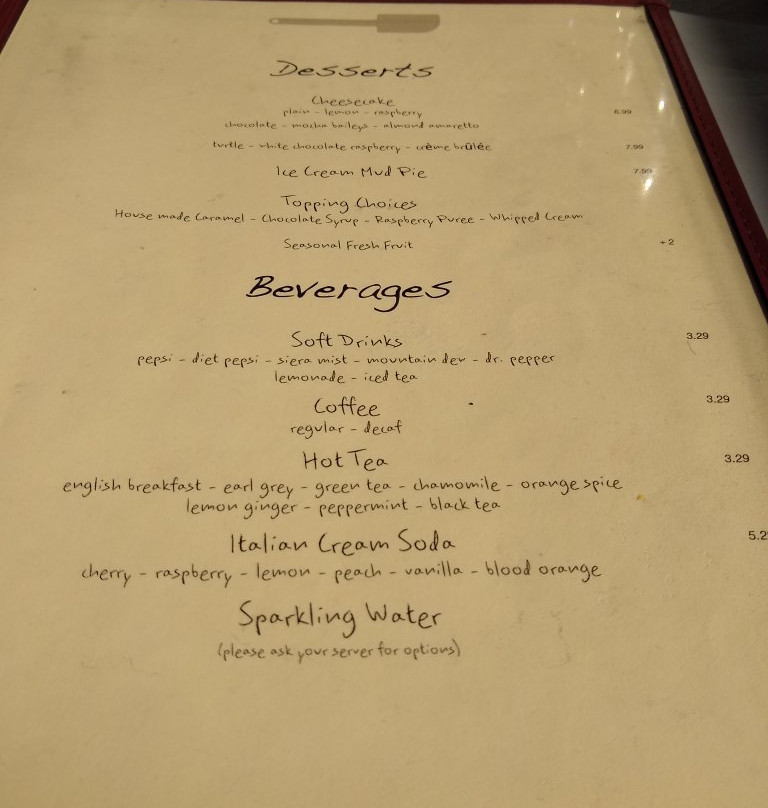 Desserts
Cheesecake
plain - lemon - raspberry 6.99
chocolate - mocha baileys - almond amaretto
turtle - white chocolate raspberry - crème brûlée 7.99
Ice Cream Mud Pie 7.99
Topping Choices
House made Caramel - Chocolate Syrup - Raspberry Puree - Whipped Cream
Seasonal Fresh Fruit +2
Beverages
Soft Drinks 3.29
pepsi - diet pepsi - siera mist - mountain dew - dr. pepper
lemonade - iced tea
Coffee 3.29
regular - decaf
Hot Tea 3.29
english breakfast - earl grey - green tea - chamomile - orange spice
lemon ginger - peppermint - black tea
Italian Cream Soda 5.2
cherry - raspberry - lemon - peach - vanilla - blood orange
Sparkling Water
(please ask your server for options)